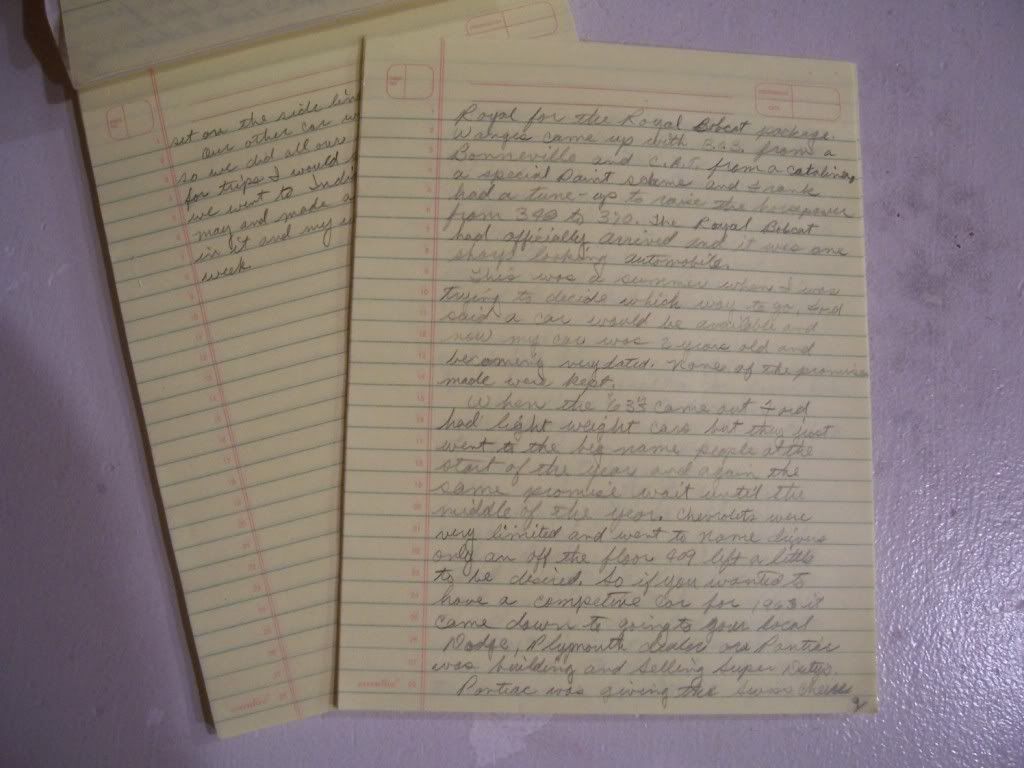 set on the side lin
Our other car w
so we did all our
for trips. I would
we went to Indi
may and made a
in it and my
week.
Royal for the Royal Bobcat package.
Wangers came up with 3.63 from a
Bonneville and C.A.T. from a catalina,
a special Paint scheme and Frank
had a tune-up to raise the horsepower
from 340 to 370. The Royal Bobcat
had officially arrived and it was one
sharp looking automobile.
This was a summer when I was
trying to decide which way to go. Ford
said a car would be available and
now my car was 2 years old and
becoming very dated. None of the promises
made were kept.
When the 63's came out Ford
had light weight cars but they just
went to the big name people at the
start of the year and again the
same promise wait until the
middle of the year. Chevrolets were
very limited and went to name drivers
only an off the floor 409 left a little
to be desired. So if you wanted to
have a competive car for 1963 it
came down to going to your local
Dodge, Plymouth dealer or Pontiac
was building and selling Super Dutys.
Pontiac was giving the Swiss cheese
9